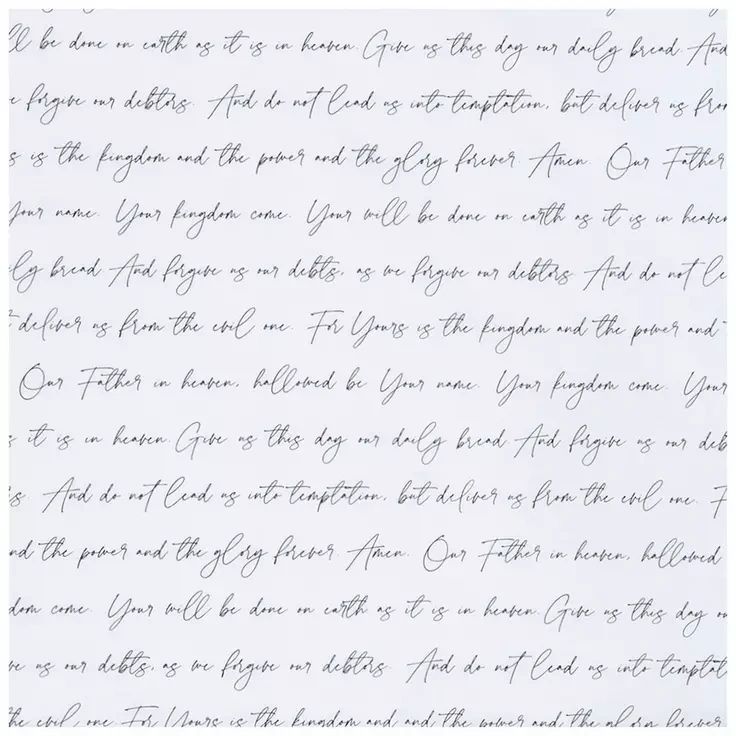 ll be done on earth as it is in heaven. Give us this day our daily bread. And
e forgive our debtors. And do not lead us into temptation, but deliver us from
s is the kingdom and the power and the glory forever. Amen. Our Father
Your name. Your kingdom come. Your will be done on earth as it is in heaven
ly bread. And forgive us our debts, as we forgive our debtors. And do not le
deliver us from the evil one. For Yours is the kingdom and the power and
Our Father in heaven, hallowed be Your name. Your kingdom come. Your
s it is in heaven. Give us this day our daily bread. And forgive us our deb
s. And do not lead us into temptation, but deliver us from the evil one. F
nd the power and the glory forever. Amen. Our Father in heaven, hallowed
dom come. Your will be done on earth as it is in heaven. Give us this day o
ve us our debts, as we forgive our debtors. And do not lead us into temptat
the evil one. For Yours is the kingdom and and the power and the glory forever